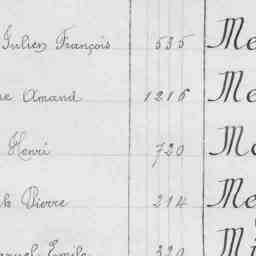 Julien François 535 Me
Amand 1216 Me
Henri 720 Mo
Pierre 214 Me
Emile 320 Mi